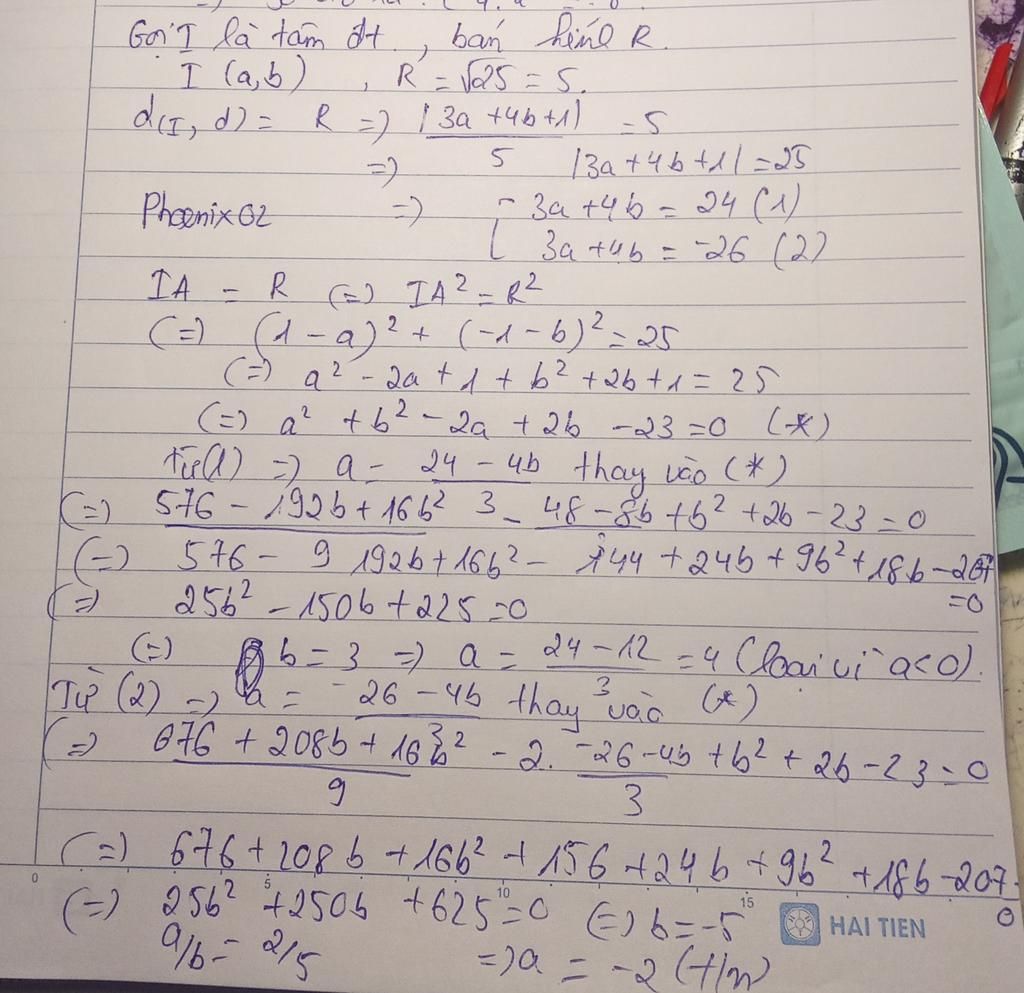 Gọi I là tâm đt , bán kính R.
I (a,b) , R = √25 = 5.
d(I, d) = R => |3a +4b+1| / 5 = 5
=> |3a+4b+1| = 25
Phoenix02 => [ 3a +4b = 24 (1)
3a+4b = -26 (2)
IA = R (=) IA² = R²
(=) (1-a)² + (-1-b)² = 25
(=) a² - 2a + 1 + b² + 2b + 1 = 25
(=) a² + b² - 2a + 2b - 23 = 0 (*)
Từ(1) => a = 24 - 4b / 3 thay vào (*)
(=) 576 - 192b + 16b² / 9 - 48 - 8b / 3 + b² + 2b - 23 = 0
(=) 576 - 192b + 16b² - 144 + 24b + 9b² + 18b - 207 = 0
(=) 25b² - 150b + 225 = 0
(=) b = 3 => a = 24 - 12 / 3 = 4 (loại vì a<0).
Từ (2) => a = -26 - 4b / 3 thay vào (*)
(=) 676 + 208b + 16b² / 9 - 2. -26 - 4b / 3 + b² + 2b - 23 = 0
(=) 676 + 208b + 16b² + 156 + 24b + 9b² + 18b - 207 = 0
(=) 25b² + 250b + 625 = 0 (=) b = -5
a/b = 2/5 => a = -2 (t/m)
0 5 10 15
HAI TIEN